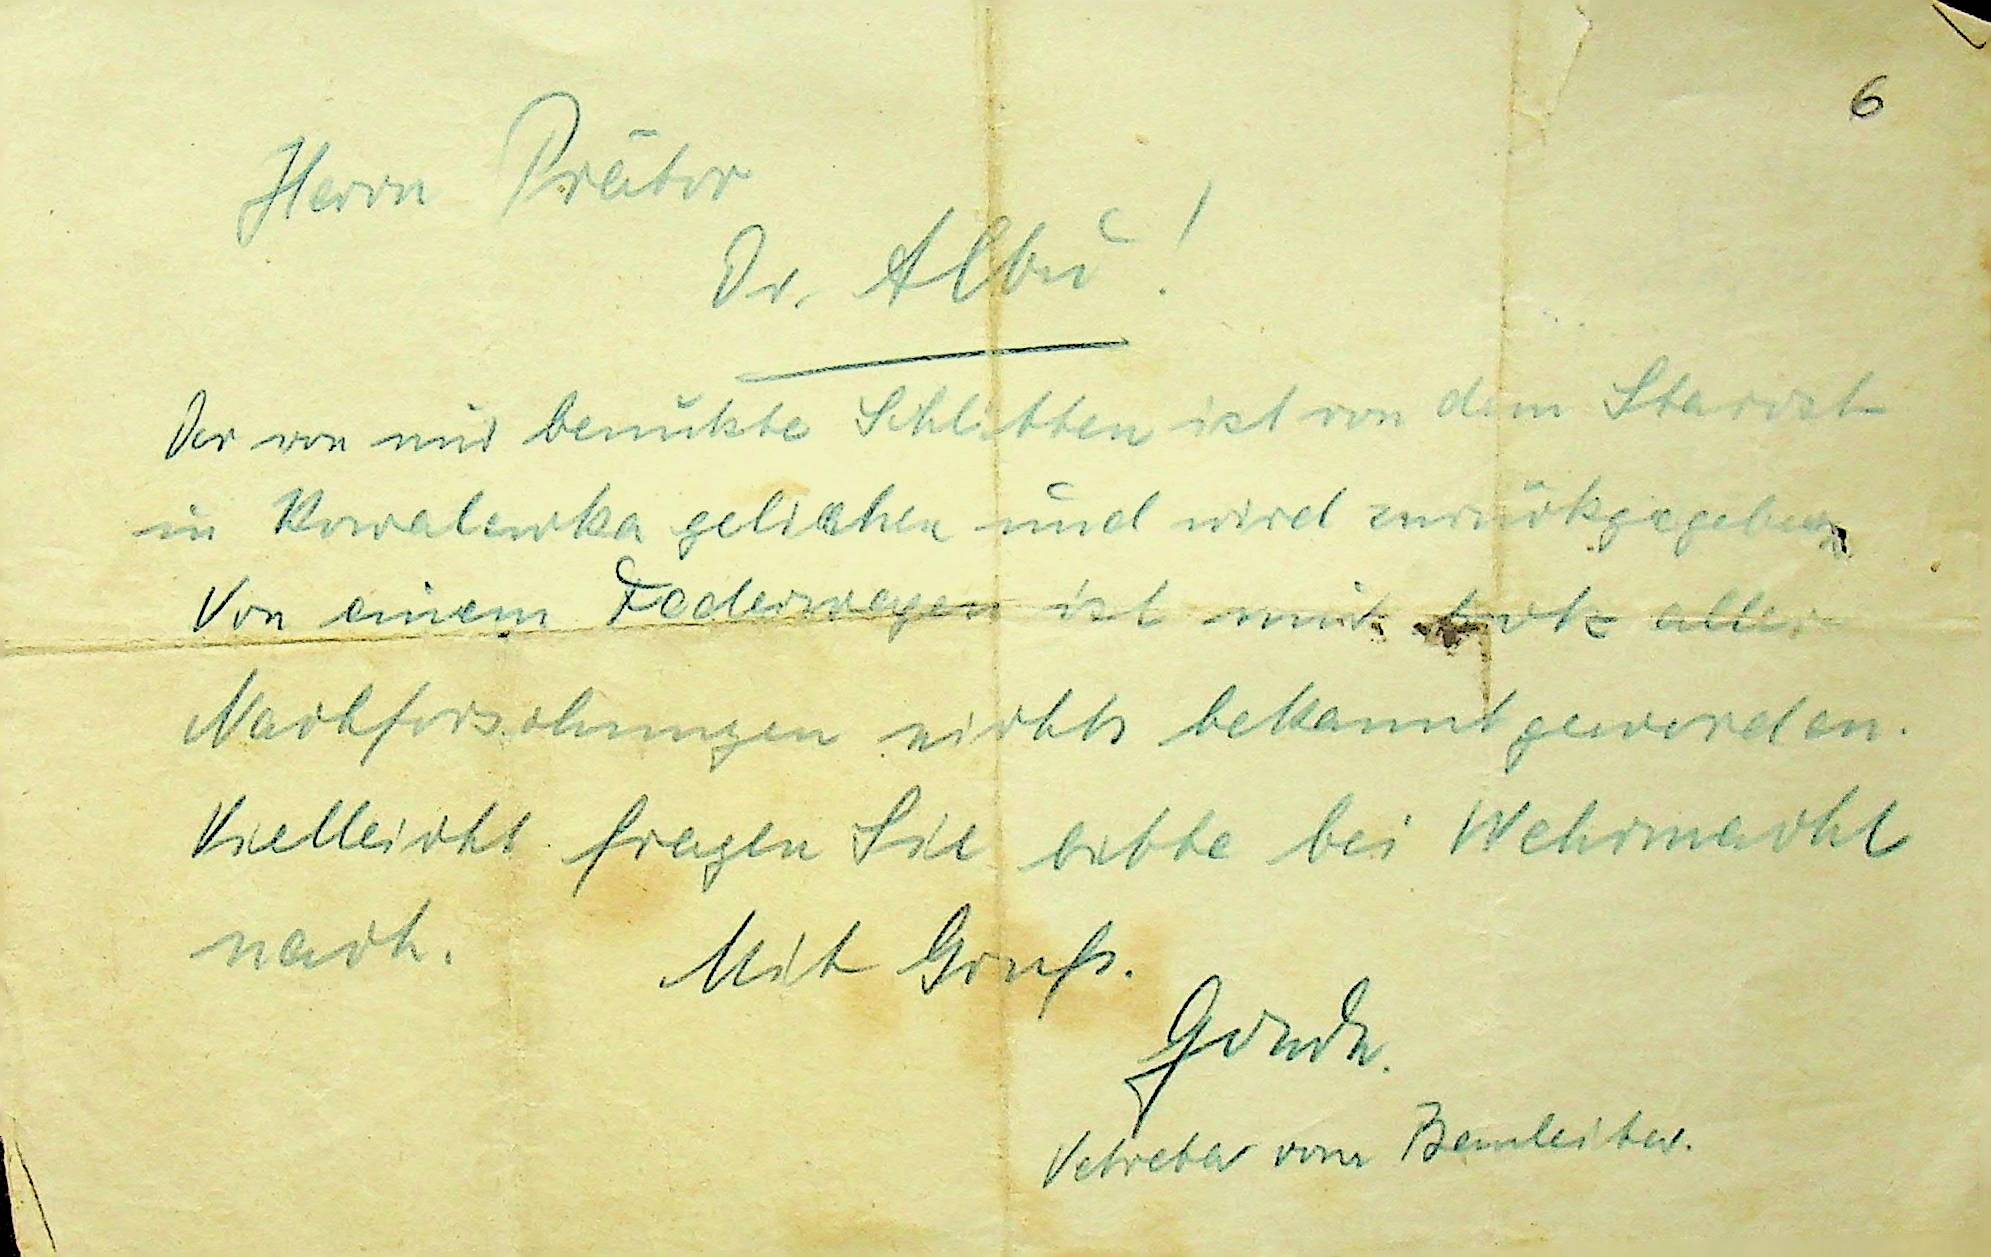 6
Herrn Prätor
Dr. Albŭ!
Der von mir benützte Schlitten ist von dem Starost
in Kowalewka geliehen und wird zurückgegeben
Von einem Federwagen ist mir trotz aller
Nachforschungen nichts bekannt geworden.
Vielleicht fragen Sie bitte bei Wehrmacht
nach. Mit Gruß.
Vetreter vom Bauleiter.